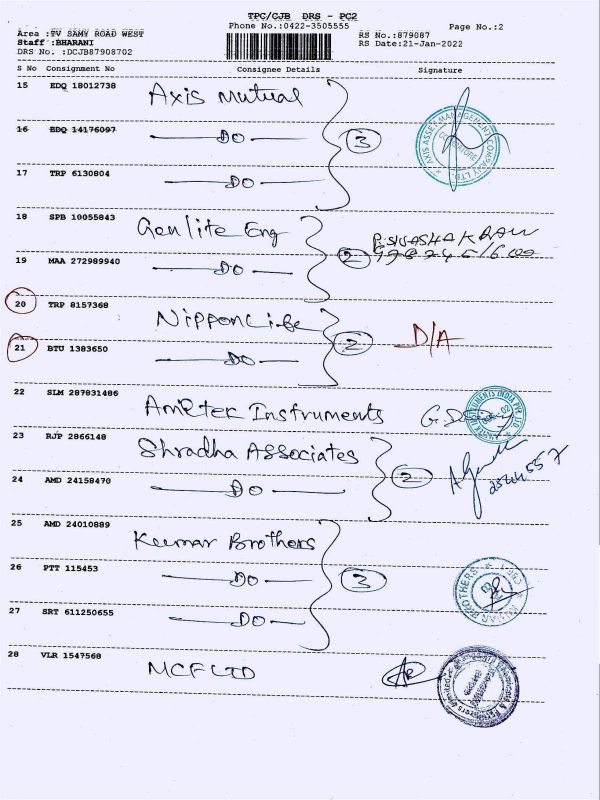 TPC/CJB DRS - PC2
Phone No.:0422-3505555 Page No.:2
Area :TV SAMY ROAD WEST RS No.:879087
Staff :BHARANI RS Date:21-Jan-2022
DRS No. :DCJB87908702
S No Consignment No Consignee Details Signature
15 EDQ 18012738 Axis Mutual
AXIS ASSET MANAGEMENT COMPANY LTD. COIMBATORE
16 EDQ 14176097 DO 3
17 TRP 6130804 DO
18 SPB 10055843 Genlite Eng
19 MAA 272989940 DO 2
20 TRP 8157368 Nippon Life
21 BTU 1383650 DO 2 D/A
22 SLM 287831486 Ametek Instruments
INSTRUMENTS INDIA PVT. LTD.
23 RJP 2866148 Shradha Associates
24 AMD 24158470 DO 2
25 AMD 24010889 Kumar Brothers
26 PTT 115453 DO 3
KUMAR BROTHERS
27 SRT 611250655 DO
28 VLR 1547568 MCFLTD